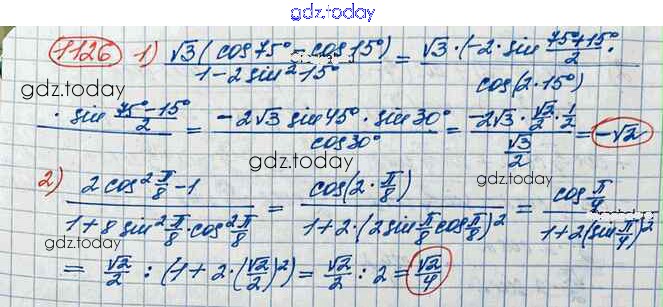 gdz.today
1126 1) √3(cos75°-cos15°)/(1-2sin²15°) = √3·(-2·sin (75°+15°)/2 ·
gdz.today
· sin (75°-15°)/2 / cos(2·15°) = -2√3 sin45°·sin30°/cos30° = (-2√3·√2/2·1/2)/(√3/2) = -√2
gdz.today
2) (2cos²π/8-1)/(1+8sin²π/8·cos²π/8) = cos(2·π/8)/(1+2·(2sinπ/8cosπ/8)²) = cosπ/4/(1+2(sinπ/4)²
gdz.today
= √2/2 : (1+2·(√2/2)²) = √2/2 : 2 = √2/4
gdz.today